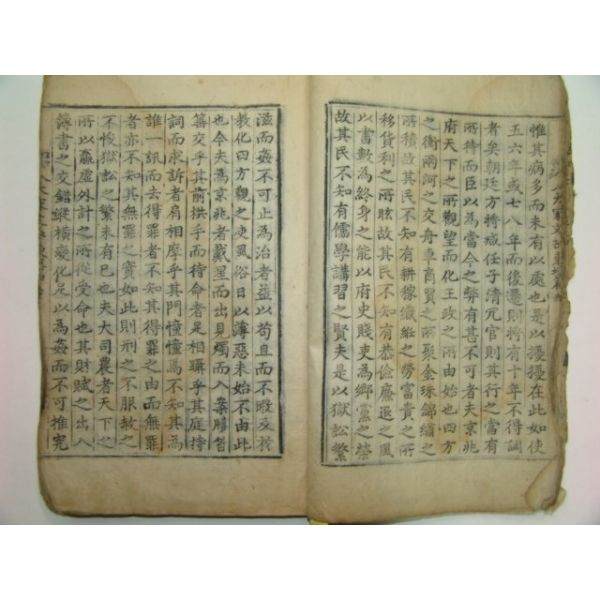 惟其病多而未有以處也是以擾擾在此如使
五六年或七八年而後遷則將有十年不得調
者矣朝廷方將減任子清冗官則其行之當有
所待而臣以為當今之弊有甚不可者夫京兆
府天下之所觀望而化王政之所由始也四方
之衝兩河之交舟車商賈之所聚金珠錦繡之
所積故其民不知有耕稼織紝之勞富貴之所
移貨利之所眩故其民不知有恭儉廉退之風
以書數為終身之能以府史賤吏為鄉黨之榮
故其民不知有儒學講習之賢夫是以獄訟繁
滋而姦不可止為治者益以苟且而不暇及於
教化四方觀之使風俗日以薄惡未始不由此
也今夫為京兆者戴星而出見燭而入案牘笞
箠交乎其前拱手而待命者足相躡乎其庭持
詞而求訴者肩相摩乎其門憧憧焉不知其為
誰一訊而去得罪者不知其得罪之由而無罪
者亦不知其無罪之實如此則刑之不服赦之
不悛獄訟之繁未有已也夫大司農者天下之
所以贏虛外計之所從受命也其財賦之出入
簿書之交錯縱橫變化足以為姦而不可推究